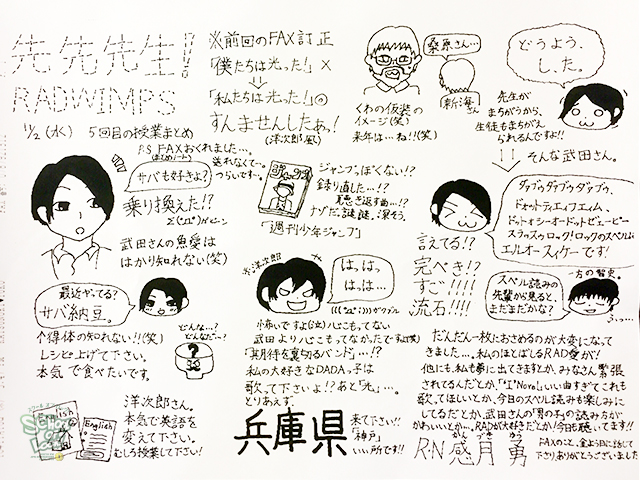 先先先生!
RADWIMPS
1/2(水) 5回目の授業まとめ
※前回のFAX訂正
「僕たちは光った!」×
「私たちは光った!」
すんませんしたぁ!
(洋次郎風)
桑原さん…
(新海さん)
くわの仮装の
イメージ(笑)
来年は…ね!!(笑)
どうよう、
し、た。
先生が
まちがうから、
生徒もまちがえ
られるんですよ!!
そんな武田さん。
P.S FAXおくれました…。
送れなくて…。
つらいです…。
サバも好きよ?
乗り換えた!?
武田さんの魚愛は
はかり知れない(笑)
ジャンプ
ジャンプ、ぽくない!?
録り直した…!?
聴き返す曲…!?
「週刊少年ジャンプ」
ダブゥダブゥダブゥ、
エルオースィケーです!
言えてる!?
完ぺき!?
すご!!!!
流石!!!!
最近ヤってる?
サバ納豆。
(得体の知れない!!(笑)
レシピ上げて下さい。
本気で食べたいです。
どんな…?
どんなだ…?
?
洋次郎
はっ。
はっはっ
は……。
小怖いですよ(泣)ハじこもってない
武田よりハじこもってなかたですよ(笑)
「期待を裏切るバンド」…!?
私の大好きなDADAっ子は
歌って下さいよ!?あと「光」…。
とりあえず。
一方の智史。
スペル読みの
先輩から見ると、
まだまだかな?
ふっ…。
English
English
洋次郎さん。
本気で英語を
変えて下さい。
むしろ授業して下さい!
兵庫県
来て下さい!!
「神戸」
いい所です!!
だんだん一枚におさめるのが大変になって
きました…。私のほとばしるRAD愛が!
他にも、私も夢に出てきますとか、みなさん緊張
されてるんだとか、「'I' Novel」いい曲すぎてこれも
歌ってほしいとか、今日のスペル読みも楽しみに
してるだとか、武田さんの「男の子」の読み方が
かわいいとか…。RADが大好きだとか!今日も聴いてます!!
R.N 感月 勇
かん づき ゆう
FAXのこと、金よう日に話して
下さりありがとうございました